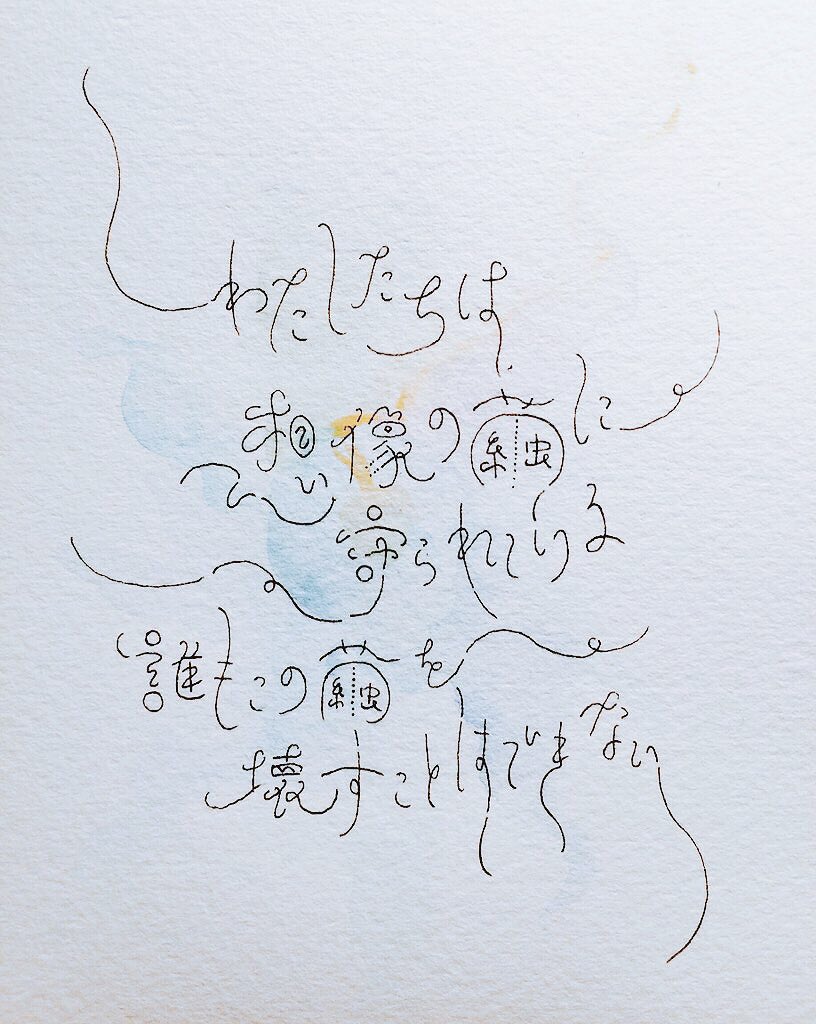 わたしたちは
想像の繭に
守られている
誰もこの繭を
壊すことはできない